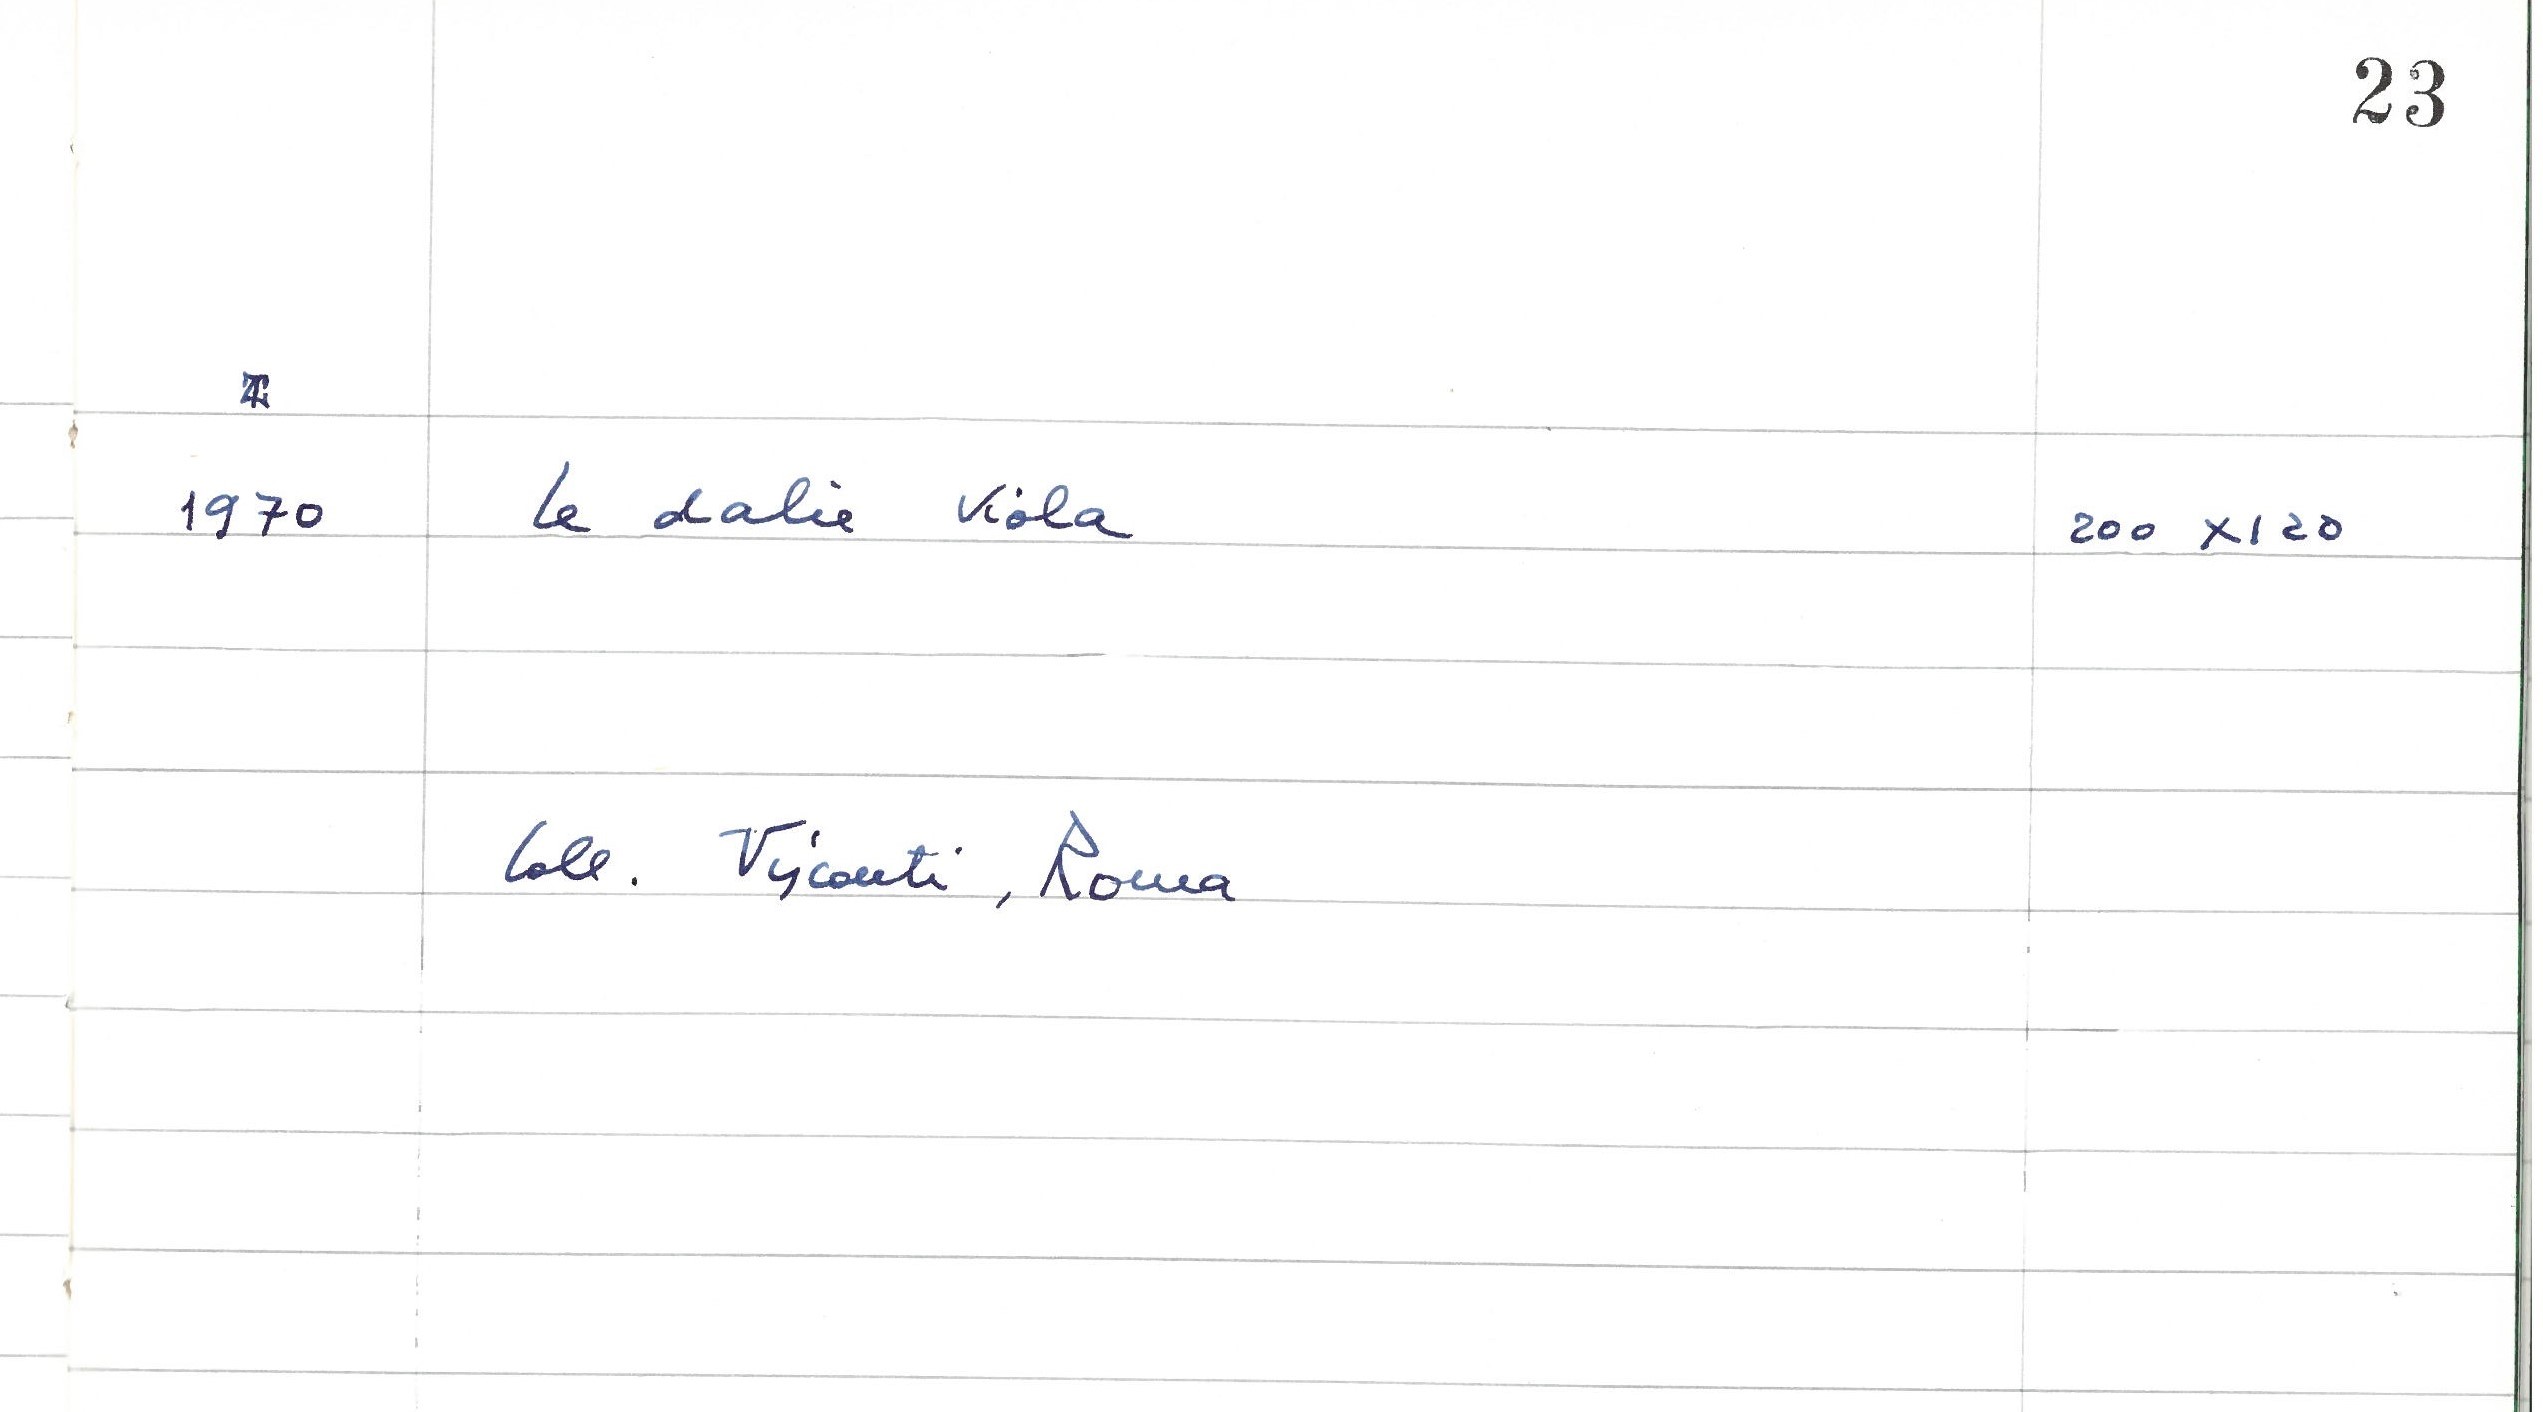 23
1970 Le dalie viola 200 x 120
Coll. Visconti, Roma